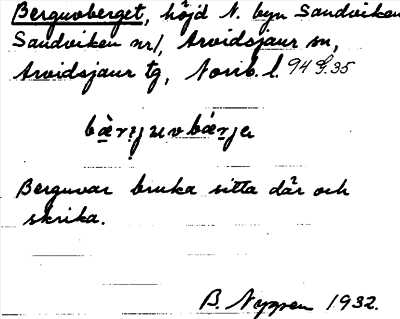 Berguvberget, höjd N. byn Sandviken
Sandviken nr 1, Arvidsjaur sn,
Arvidsjaur tg, Norrb. l. 94 G. 35
Berguvar bruka sitta där och
skrika.
B. Nygren 1932.